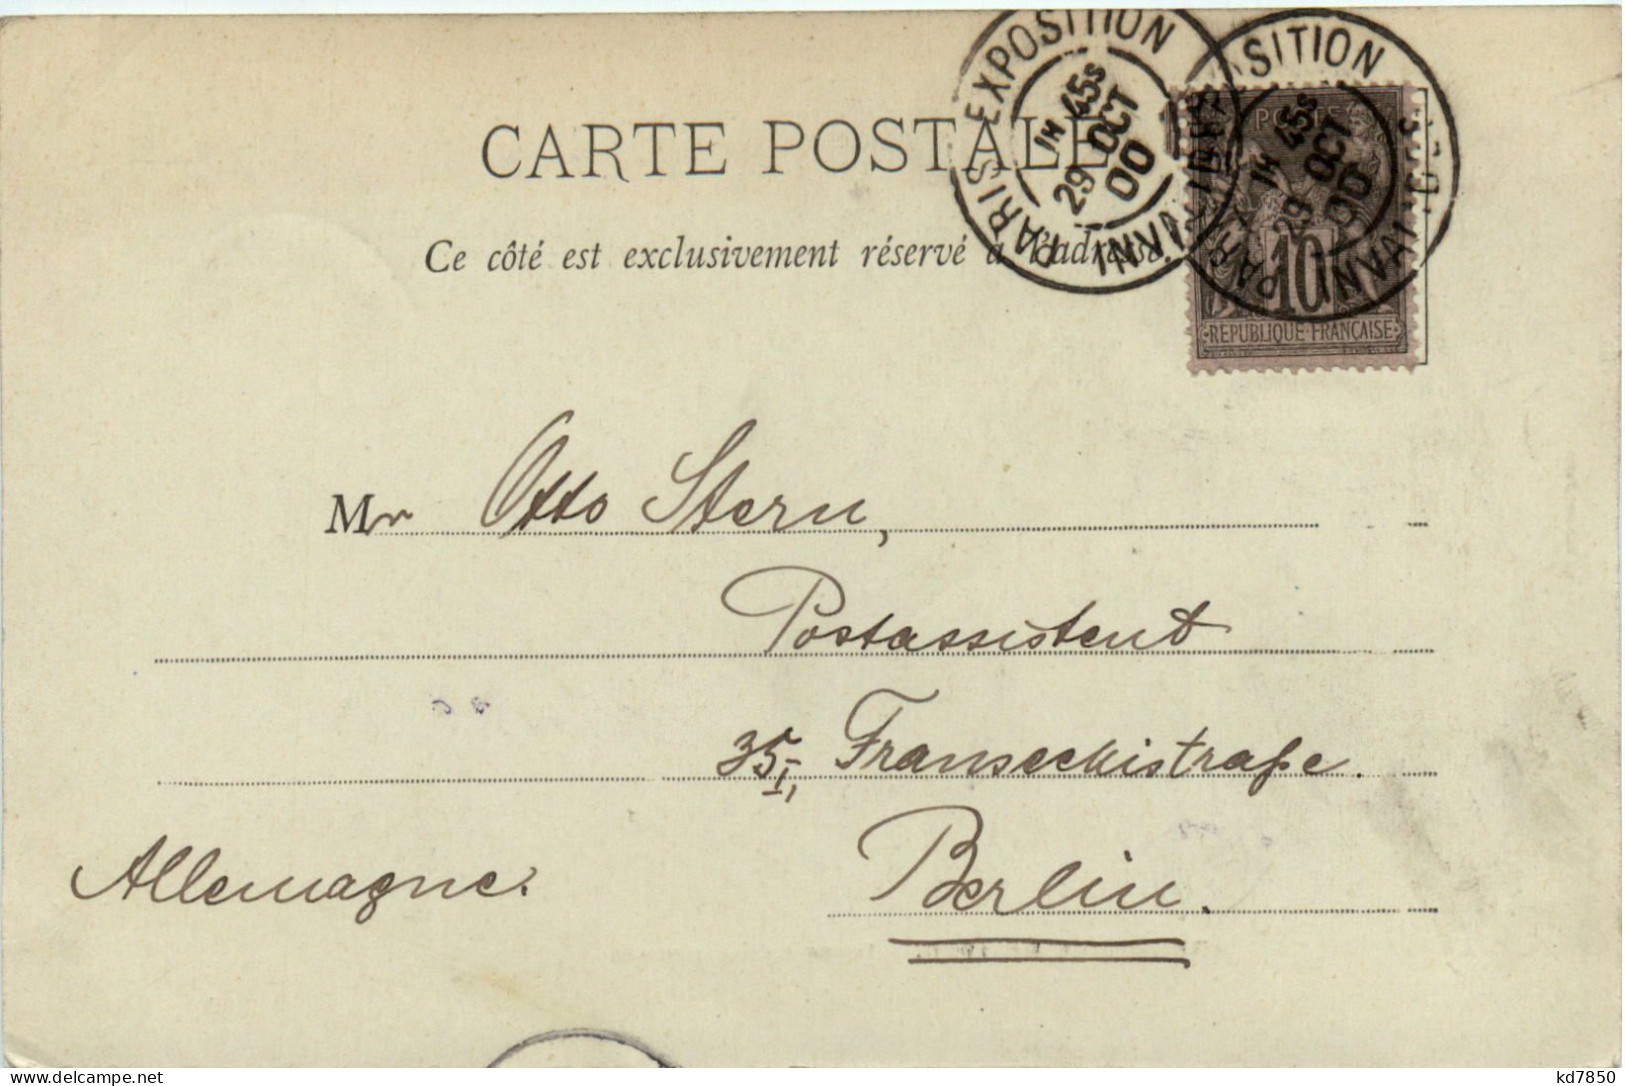 PARIS EXPOSITION INVALIDES
1H 45S
29 OCT
00
PARIS EXPOSITION INVALIDES
1H 45S
29 OCT
00
POSTES
10
REPUBLIQUE FRANÇAISE
CARTE POSTALE
Ce côté est exclusivement réservé à l'adresse.
Mr Otto Stern,
Postassistent
35, I, Franseckistraße.
Allemagne. Berlin.
kd7850